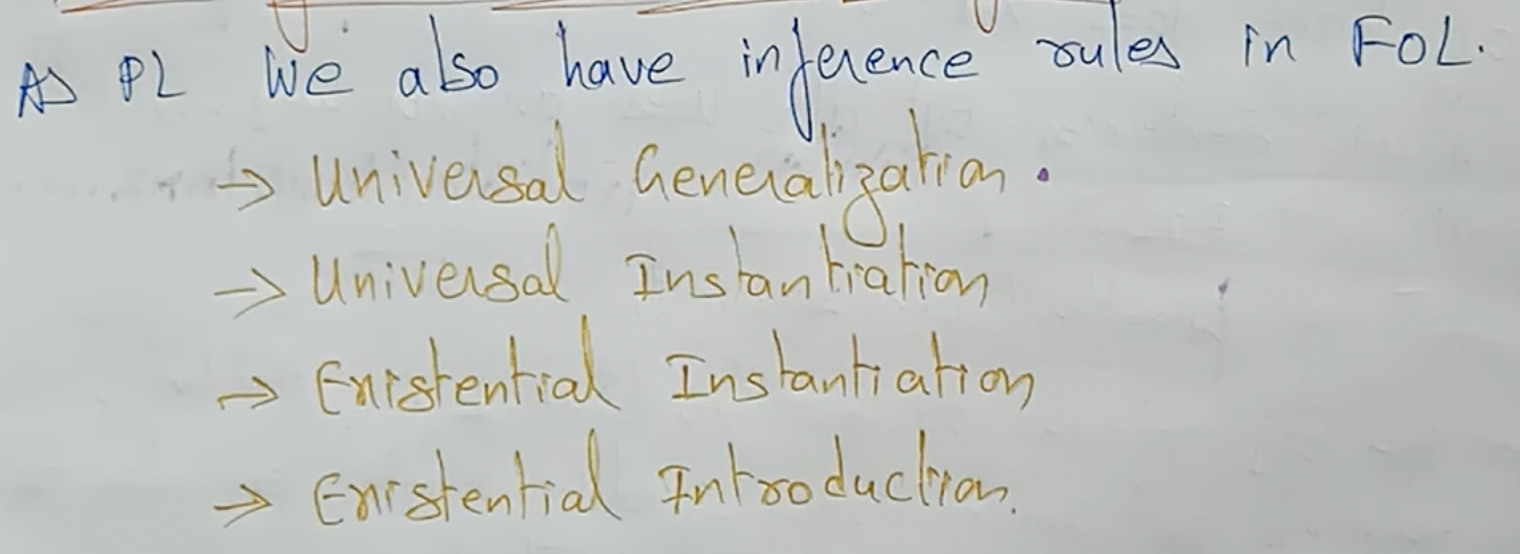 As PL We also have inference rules in FOL.
→ Universal Generalization.
→ Universal Instantiation
→ Existential Instantiation
→ Existential Introduction.